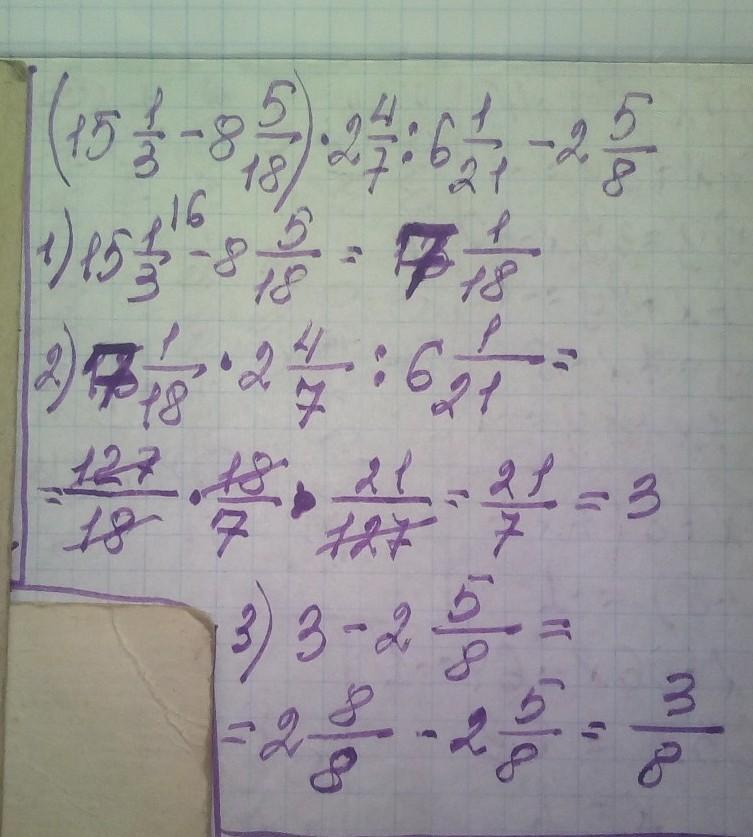 (15 1/3 - 8 5/18) · 2 4/7 : 6 1/21 - 2 5/8
1) 15 1/3 ¹⁶ - 8 5/18 = 7 1/18
2) 7 1/18 · 2 4/7 : 6 1/21 =
= 127/18 · 18/7 · 21/127 = 21/7 = 3
3) 3 - 2 5/8 =
= 2 8/8 - 2 5/8 = 3/8